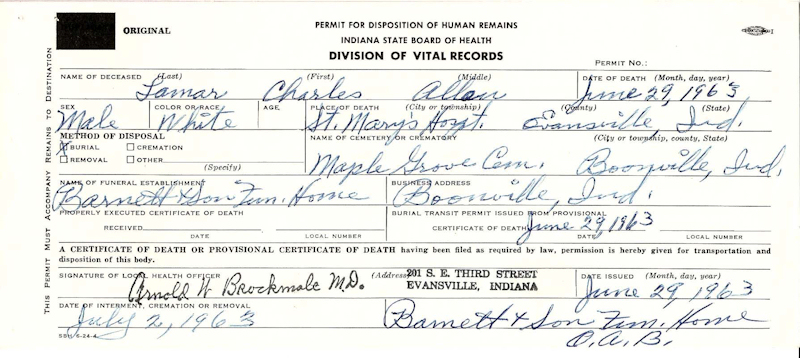 ORIGINAL
PERMIT FOR DISPOSITION OF HUMAN REMAINS
INDIANA STATE BOARD OF HEALTH
DIVISION OF VITAL RECORDS
PERMIT NO.:
THIS PERMIT MUST ACCOMPANY REMAINS TO DESTINATION
NAME OF DECEASED (Last) (First) (Middle) DATE OF DEATH (Month, day, year)
Lamar Charles Allan June 29, 1963
SEX COLOR OR RACE AGE PLACE OF DEATH (City or township) (County) (State)
Male White St. Mary's Hospt. Evansville, Ind.
METHOD OF DISPOSAL NAME OF CEMETERY OR CREMATORY (City or township, county, State)
X BURIAL CREMATION
REMOVAL OTHER
(Specify)
Maple Grove Cem. Boonville, Ind.
NAME OF FUNERAL ESTABLISHMENT BUSINESS ADDRESS
Barnett & Son Fun. Home Boonville, Ind.
PROPERLY EXECUTED CERTIFICATE OF DEATH BURIAL TRANSIT PERMIT ISSUED FROM PROVISIONAL
RECEIVED CERTIFICATE OF DEATH June 29, 1963
DATE LOCAL NUMBER DATE LOCAL NUMBER
A CERTIFICATE OF DEATH OR PROVISIONAL CERTIFICATE OF DEATH having been filed as required by law, permission is hereby given for transportation and
disposition of this body.
SIGNATURE OF LOCAL HEALTH OFFICER (Address) 201 S. E. THIRD STREET DATE ISSUED (Month, day, year)
Arnold W Brockmole M.D. EVANSVILLE, INDIANA June 29, 1963
DATE OF INTERMENT, CREMATION OR REMOVAL
July 2, 1963 Barnett & Son Fun. Home
O.A.B.
SBH 6-24-4